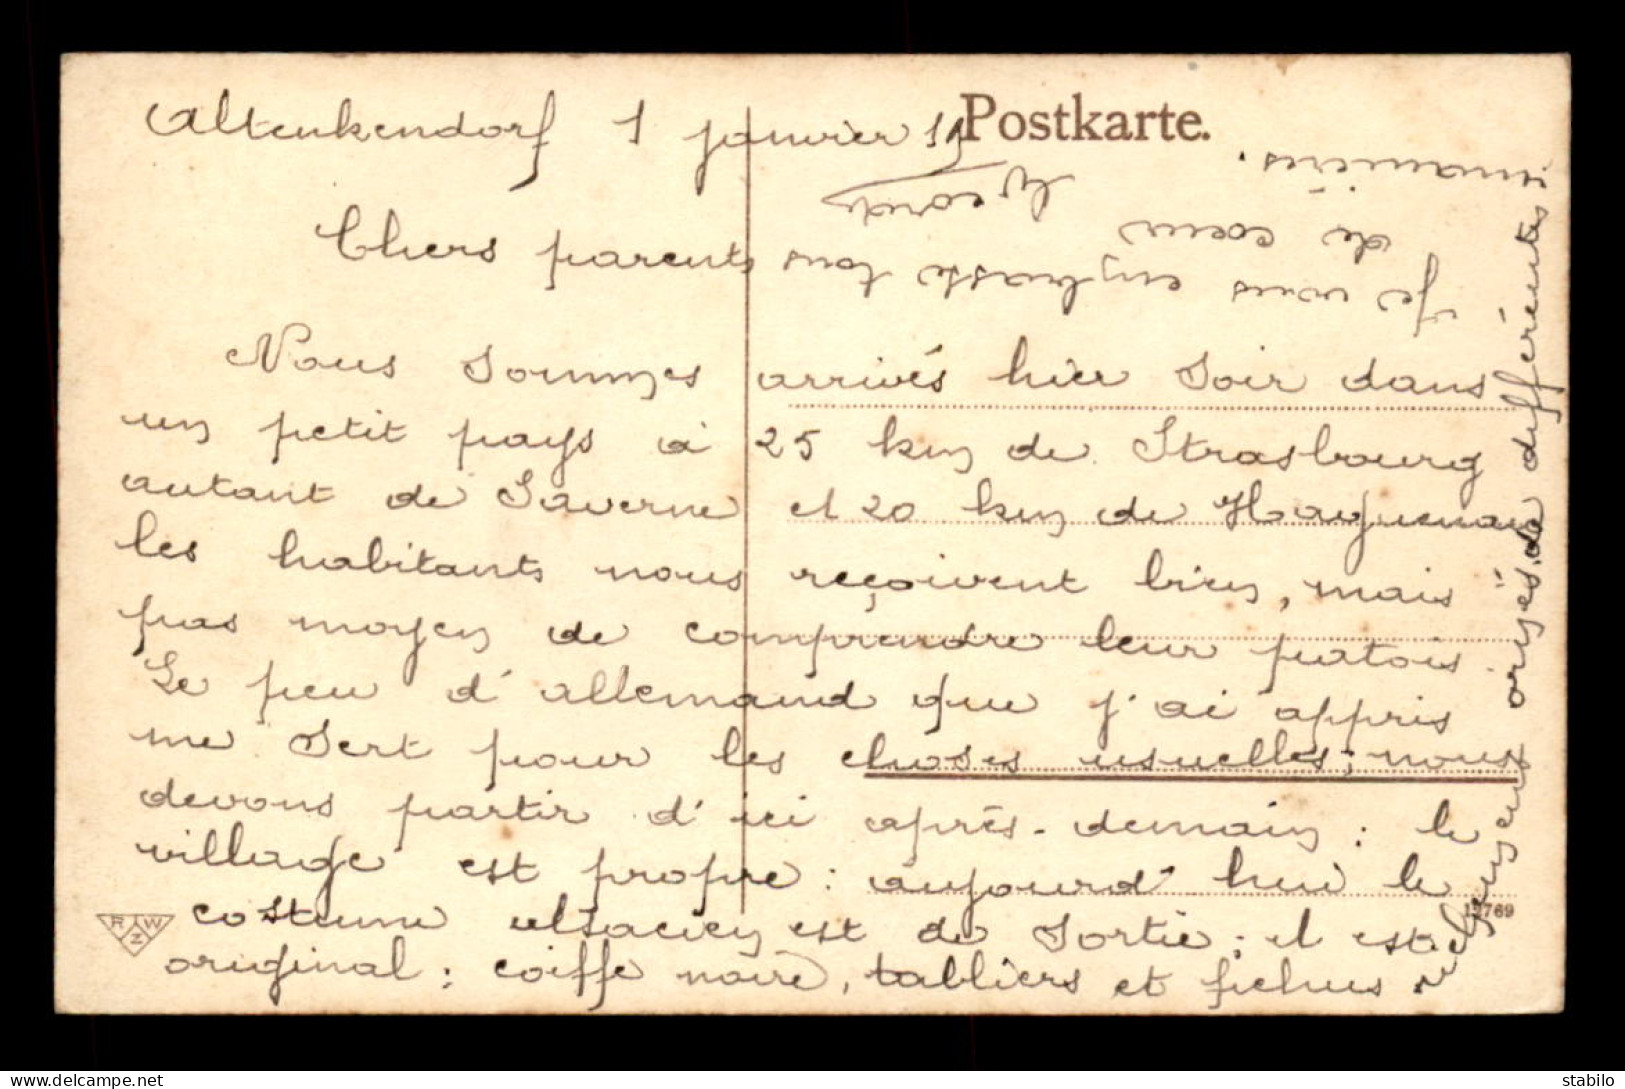 Altenkendorf 1 janvier 19
Postkarte.
Chers parents
Nous sommes arrivés hier soir dans
un petit pays à 25 km de Strasbourg
autant de Saverne et 20 km de Haguenau
les habitants nous reçoivent bien, mais
pas moyen de comprendre leur patois.
Le peu d'allemand que j'ai appris
me sert pour les choses usuelles; nous
devons partir d'ici après-demain: le
village est propre: aujourd'hui le
costume alsacien est de sortie; il est
original: coiffe noire, tabliers et fichus
richement ornés de différentes
manières.
Je vous embrasse tous
de cœur
R W Z
12769